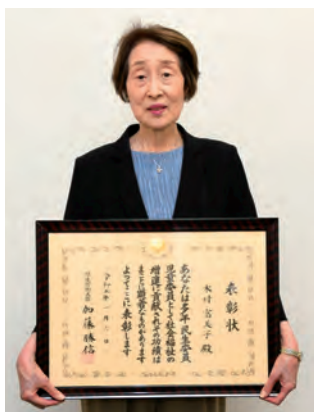 表彰状
殿
あなたは多年民生委員
児童委員として社会福祉の
増進に貢献されその功績は
まことに顕著なものがあります
よってここに表彰します
厚生労働大臣 加藤勝信